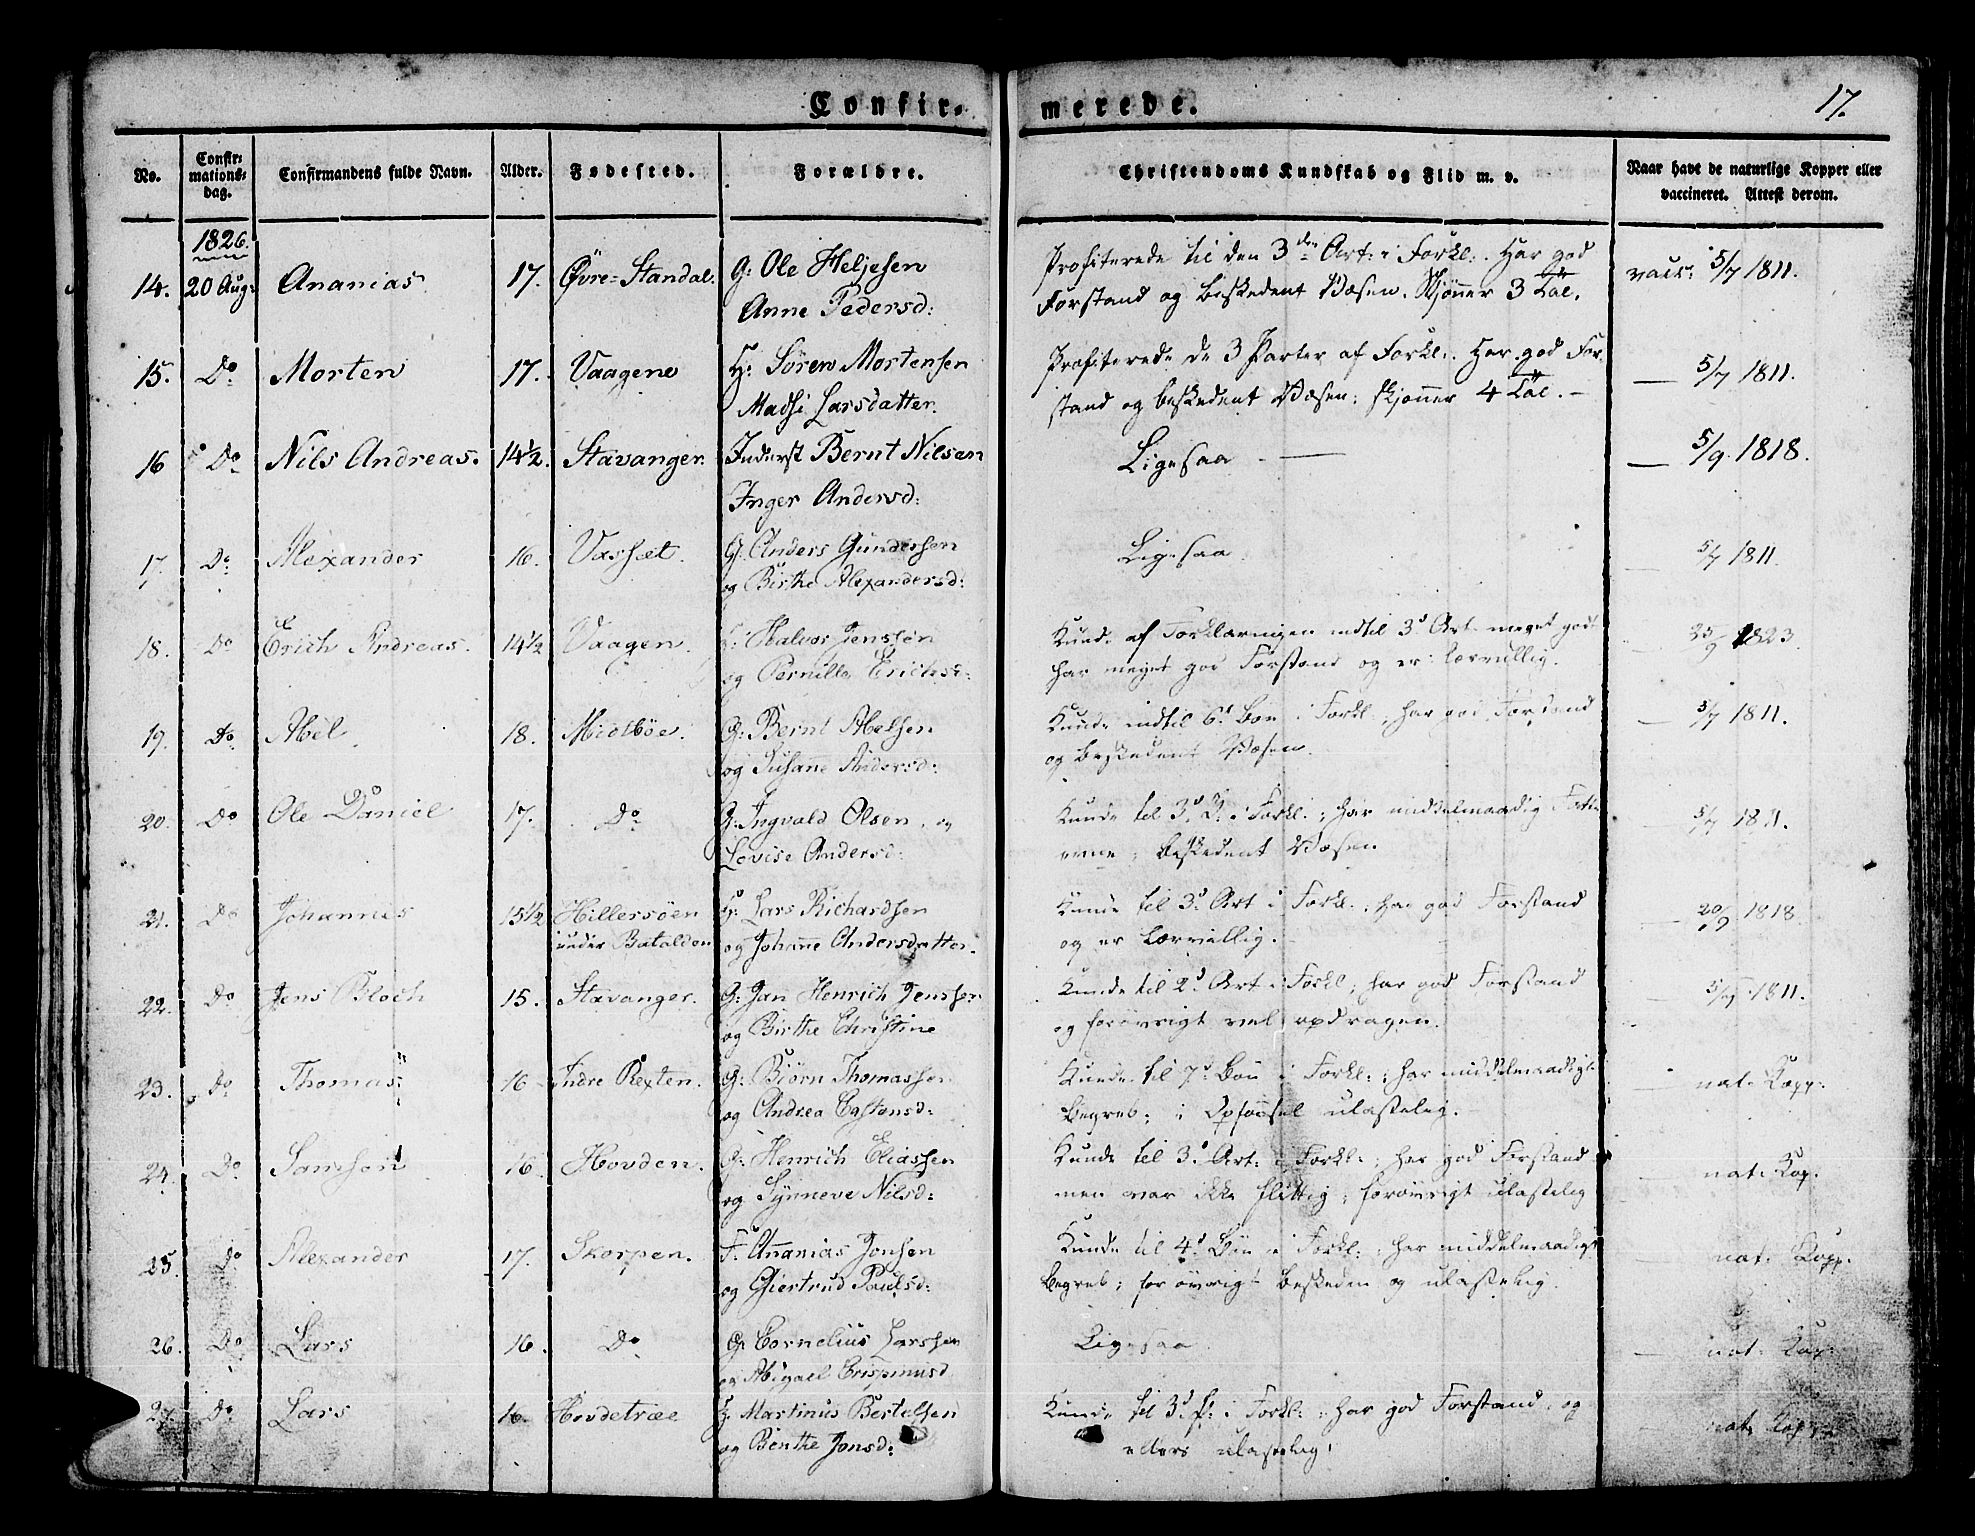 Confir-
merede.
17.
No.
Confir-
mations-
dag.
Confirmandens fulde Navn.
Alder.
Fødested.
Forældre.
Christendoms Kundskab og Flid m. v.
Naar havt de naturlige Kopper eller
vaccineret. Attest derom.
1826.
14. 20 Aug: Ananias. 17. Øvre-Standal. G: Ole Heljesen Profiterede til den 3die Art: i Forkl:. Har god vacc: 5/7 1811.
Anne Pedersd: Forstand og beskedent Væsen. Skjønner 3 Tal.
15. Do Morten 17. Vaagene H: Sören Mortensen Profiterede de 3 Parter af Forkl:. Har god For- — 5/7 1811.
Madsi Larsdatter. stand og beskedent Væsen; skjønner 4 Tal. –
16 Do Nils Andreas. 14½. Stavanger. Inderst Bernt Nilsen Ligesaa — 5/9 1818.
Inger Andersd:
17. Do Alexander 16. Vasset. G: Anders Gundersen Ligesaa 5/7 1811.
og Birthe Alexandersd:
18. Do Erich Andreas. 14½ Vaagen. H: Halvor Jenssen Kunde af Forklaringen indtil 3d Art. meget godt 25/9 1823.
og Pernille Erichsd: har meget god Forstand og er lærvillig.
19. Do Abel. 18. Midtböe. G: Bernt Abelsen Kunde indtil 6t Bøn i Forkl:, har god Forstand 5/7 1811.
og Susane Andersd: og beskedent Væsen.
20. Do Ole Daniel 17. Do G: Ingvald Olsen, og Kunde til 3d P. i Forkl:; har middelmaadig 5/7 1811.
Lovise Andersd: evne; beskedent Væsen
21. Do Johannes 15½ Hillersöen H: Lars Richardsen Kunde til 3d Art i Forkl:, har god Forstand 20/9 1818.
under Batalden og Johane Andersdatter. og er lærvillig.
22. Do Jens Bloch 15. Stavanger. G: Jan Henrich Jenssen Kunde til 2d Art i Forkl:; har god Forstand 5/7 1811.
og Birthe Christine og forøvrigt vel opdragen.
23. Do Thomas 16 Indre Rexten. G: Biörn Thomassen Kunde til 7d Bøn i Forkl:; har middelmaadigt nat: Kopp:
og Andrea Castensd: Begreb; i Opførsel ulastelig.
24. Do Samson 16. Hovden. G: Henrich Eliassen Kunde til 3d Art: i Forkl:; har god Forstand nat: Kop.
og Synneve Nilsd: men var ikke flittig; forøvrigt ulastelig
25. Do Alexander 17. Skorpen. F: Ananias Jonsen Kunde til 4d Bøn i Forkl:; har middelmaadigt nat: Kopp.
og Giertrud Paulsd: Begreb; for øvrigt beskeden og ulastelig.
26. Do Lars 16. Do G Cornelius Larssen Ligesaa nat: Kop:
og Abigael Crispinusd
27. Do Lars 16. Hovdetræe H: Martinus Bertelsen Kunde til 3d P: i Forkl:; har god Forstand, og nat: Kop:
og Benthe Jonsd: ellers ulastelig.